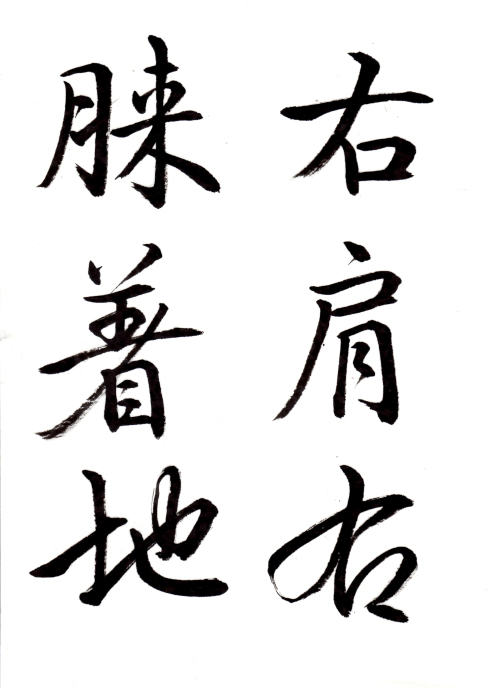 右肩右
膝着地